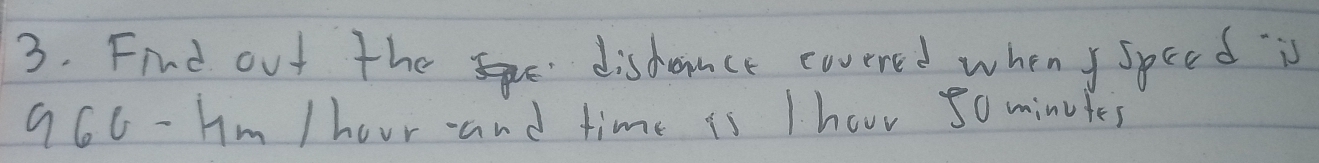 3. Find out the distance covered when speed is
966 - Km / hour - and time is 1 hour 50 minutes